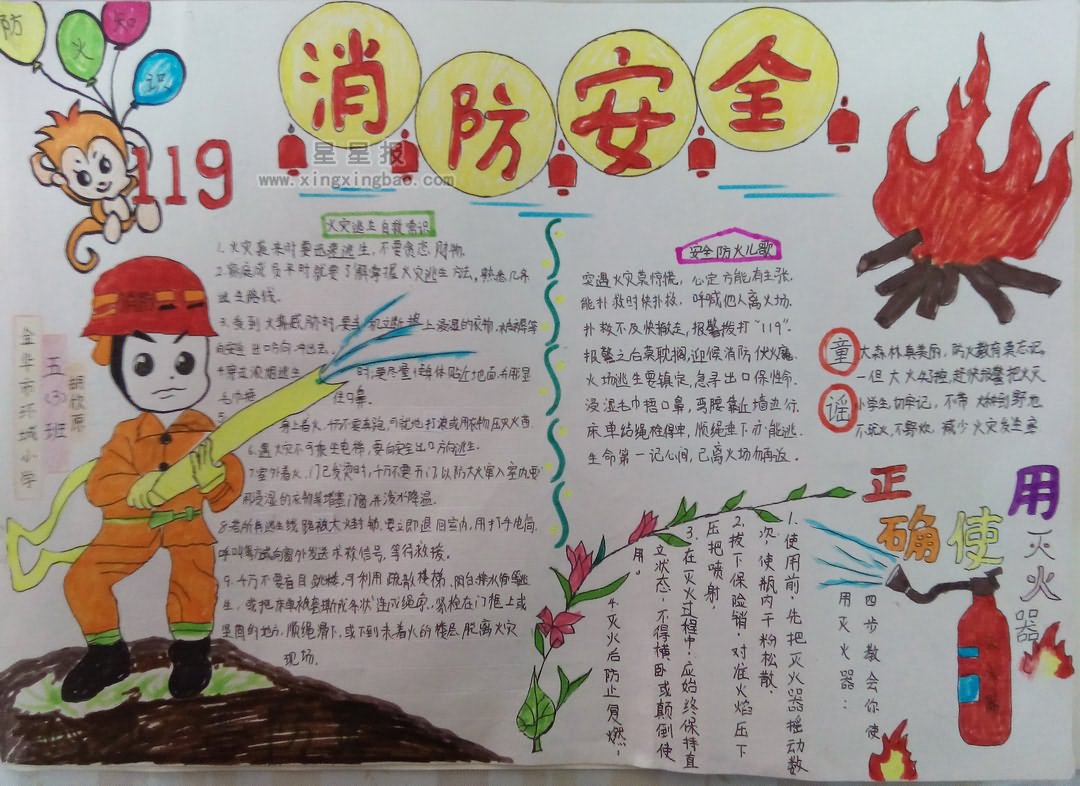 防
火
知
识
消防安全
119
星星报
www.xingxingbao.com
火灾逃生自救常识
1.火灾袭来时要迅速逃生,不要贪恋财物。
2.家庭成员平时就要了解掌握火灾逃生方法,熟悉几条
逃生路线。
3.受到火势威胁时,要当机立断披上浸湿的衣物、被褥等
向安全出口方向冲出去。
4.穿过浓烟逃生时,要尽量使身体贴近地面,并用湿
毛巾捂住口鼻。
5.身上着火,千万不要奔跑,可就地打滚或用衣物压灭火苗
6.遇火灾不可乘坐电梯,要向安全出口方向逃生。
7.室外着火,门已发烫时,千万不要开门,以防大火窜入室内,要
用浸湿的衣物等堵塞门窗,并泼水降温。
8.若所有逃生线路被大火封锁,要立即退回室内,用打手电筒,
呼叫等方式向窗外发送求救信号,等待救援。
9.千万不要盲目跳楼,可利用疏散楼梯、阳台排水管等逃
生,或把床单被套撕成条状连成绳索,紧拴在门框上或
坚固的地方,顺绳滑下,或下到未着火的楼层,脱离火灾
现场。
金华市环城小学
五(3)班
胡欣原
安全防火儿歌
突遇火灾莫惊慌,心定方能有主张。
能扑救时快扑救,呼喊他人离火场。
扑救不及快撤走,报警拨打“119”。
报警之后莫耽搁,迎候消防伏火魔。
火场逃生要镇定,急寻出口保性命。
浸湿毛巾捂口鼻,弯腰靠近墙边行。
床单结绳拴得牢,顺绳垂下亦能逃。
生命第一记心间,已离火场勿再返。
童谣
大森林真美丽,防火教育莫忘记。
一但大火
小学生,切牢记,不带火种到野地
不玩火,不野炊,减少火灾发生率
正确使用灭火器
四步教会你使
用灭火器:
1.使用前,先把灭火器摇动数
次,使瓶内干粉松散。
2.拔下保险销,对准火焰压下
压把喷射。
3.在灭火过程中,应始终保持直
立状态,不得横卧或颠倒使
用。
4.灭火后防止复燃!